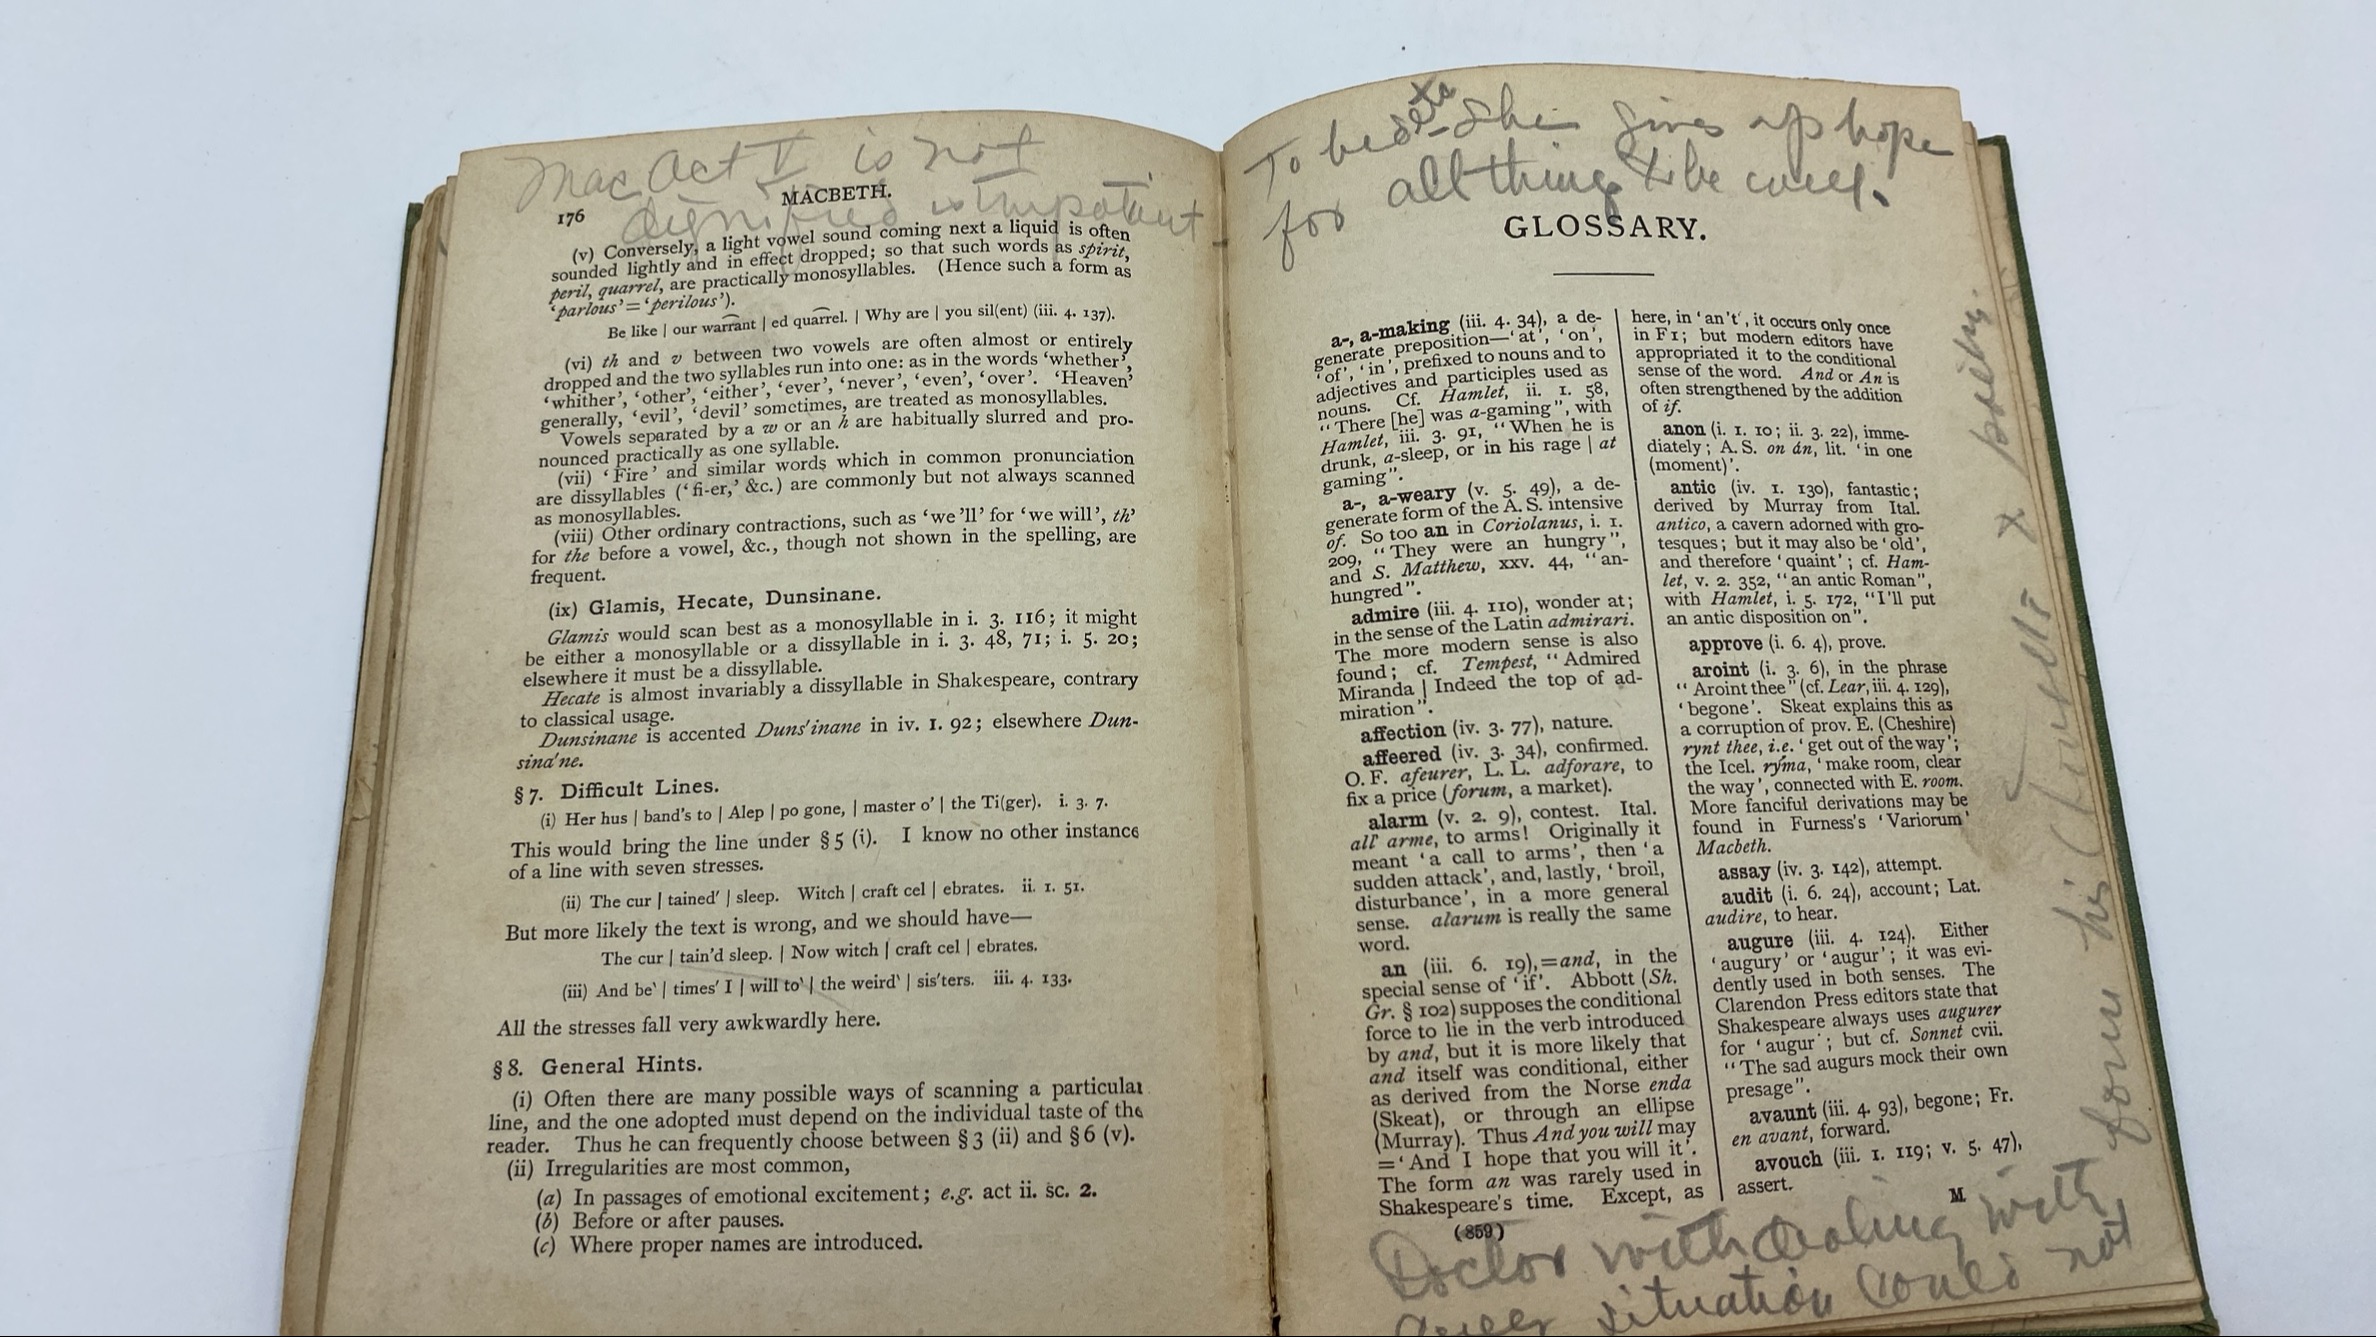 Mac Act V is not
dignified is Impotent
176
MACBETH.
(v) Conversely, a light vowel sound coming next a liquid is often
sounded lightly and in effect dropped; so that such words as spirit,
peril, quarrel, are practically monosyllables. (Hence such a form as
‘parlous’=‘perilous’).
Be like | our warrant | ed quarrel. | Why are | you sil(ent) (iii. 4. 137).
(vi) th and v between two vowels are often almost or entirely
dropped and the two syllables run into one: as in the words ‘whether’,
‘whither’, ‘other’, ‘either’, ‘ever’, ‘never’, ‘even’, ‘over’. ‘Heaven’
generally, ‘evil’, ‘devil’ sometimes, are treated as monosyllables.
Vowels separated by a w or an h are habitually slurred and pro-
nounced practically as one syllable.
(vii) ‘Fire’ and similar words which in common pronunciation
are dissyllables (‘fi-er,’ &c.) are commonly but not always scanned
as monosyllables.
(viii) Other ordinary contractions, such as ‘we ’ll’ for ‘we will’, th’
for the before a vowel, &c., though not shown in the spelling, are
frequent.
(ix) Glamis, Hecate, Dunsinane.
Glamis would scan best as a monosyllable in i. 3. 116; it might
be either a monosyllable or a dissyllable in i. 3. 48, 71; i. 5. 20;
elsewhere it must be a dissyllable.
Hecate is almost invariably a dissyllable in Shakespeare, contrary
to classical usage.
Dunsinane is accented Duns'inane in iv. 1. 92; elsewhere Dun-
sina'ne.
§ 7. Difficult Lines.
(i) Her hus | band's to | Alep | po gone, | master o' | the Ti(ger). i. 3. 7.
This would bring the line under § 5 (i). I know no other instance
of a line with seven stresses.
(ii) The cur | tained' | sleep. Witch | craft cel | ebrates. ii. 1. 51.
But more likely the text is wrong, and we should have—
The cur | tain'd sleep. | Now witch | craft cel | ebrates.
(iii) And be` | times' I | will to` | the weird` | sis'ters. iii. 4. 133.
All the stresses fall very awkwardly here.
§ 8. General Hints.
(i) Often there are many possible ways of scanning a particular
line, and the one adopted must depend on the individual taste of the
reader. Thus he can frequently choose between § 3 (ii) and § 6 (v).
(ii) Irregularities are most common,
(a) In passages of emotional excitement; e.g. act ii. sc. 2.
(b) Before or after pauses.
(c) Where proper names are introduced.
To bed - She gives up hope
for all things to be well.
GLOSSARY.
a-, a-making (iii. 4. 34), a de-
generate preposition—‘at’, ‘on’,
‘of’, ‘in’, prefixed to nouns and to
adjectives and participles used as
nouns. Cf. Hamlet, ii. 1. 58,
“There [he] was a-gaming”, with
Hamlet, iii. 3. 91, “When he is
drunk, a-sleep, or in his rage | at
gaming”.
a-, a-weary (v. 5. 49), a de-
generate form of the A. S. intensive
of. So too an in Coriolanus, i. 1.
209, “They were an hungry”,
and S. Matthew, xxv. 44, “an-
hungred”.
admire (iii. 4. 110), wonder at;
in the sense of the Latin admirari.
The more modern sense is also
found; cf. Tempest, “Admired
Miranda | Indeed the top of ad-
miration”.
affection (iv. 3. 77), nature.
affeered (iv. 3. 34), confirmed.
O. F. afeurer, L. L. adforare, to
fix a price (forum, a market).
alarm (v. 2. 9), contest. Ital.
all' arme, to arms! Originally it
meant ‘a call to arms’, then ‘a
sudden attack’, and, lastly, ‘broil,
disturbance’, in a more general
sense. alarum is really the same
word.
an (iii. 6. 19),=and, in the
special sense of ‘if’. Abbott (Sh.
Gr. § 102) supposes the conditional
force to lie in the verb introduced
by and, but it is more likely that
and itself was conditional, either
as derived from the Norse enda
(Skeat), or through an ellipse
(Murray). Thus And you will may
=‘And I hope that you will it’.
The form an was rarely used in
Shakespeare's time. Except, as
(859)
here, in ‘an't’, it occurs only once
in F1; but modern editors have
appropriated it to the conditional
sense of the word. And or An is
often strengthened by the addition
of if.
anon (i. 1. 10; ii. 3. 22), imme-
diately; A. S. on án, lit. ‘in one
(moment)’.
antic (iv. 1. 130), fantastic;
derived by Murray from Ital.
antico, a cavern adorned with gro-
tesques; but it may also be ‘old’,
and therefore ‘quaint’; cf. Ham-
let, v. 2. 352, “an antic Roman”,
with Hamlet, i. 5. 172, “I'll put
an antic disposition on”.
approve (i. 6. 4), prove.
aroint (i. 3. 6), in the phrase
“Aroint thee” (cf. Lear, iii. 4. 129),
‘begone’. Skeat explains this as
a corruption of prov. E. (Cheshire)
rynt thee, i.e. ‘get out of the way’;
the Icel. rýma, ‘make room, clear
the way’, connected with E. room.
More fanciful derivations may be
found in Furness's ‘Variorum’
Macbeth.
assay (iv. 3. 142), attempt.
audit (i. 6. 24), account; Lat.
audire, to hear.
augure (iii. 4. 124). Either
‘augury’ or ‘augur’; it was evi-
dently used in both senses. The
Clarendon Press editors state that
Shakespeare always uses augurer
for ‘augur’; but cf. Sonnet cvii.
“The sad augurs mock their own
presage”.
avaunt (iii. 4. 93), begone; Fr.
en avant, forward.
avouch (iii. 1. 119; v. 5. 47),
assert.
M
Doctor with dealing with
situation could not
form his